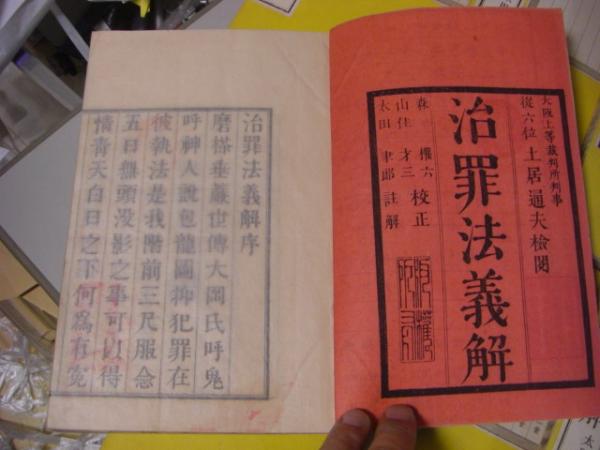 大阪上等裁判所判事
從六位 土居通夫檢閲
治罪法義解
森 權六
山住 才三 校正
太田 聿郎 註解
治罪法義解序
磨搽垂嚴也傳大岡氏呼鬼
呼神人說包龍圖抑犯罪在
彼執法是我階前三尺服念
五日無頭没影之事可以得
情青天白日之下何為有冤